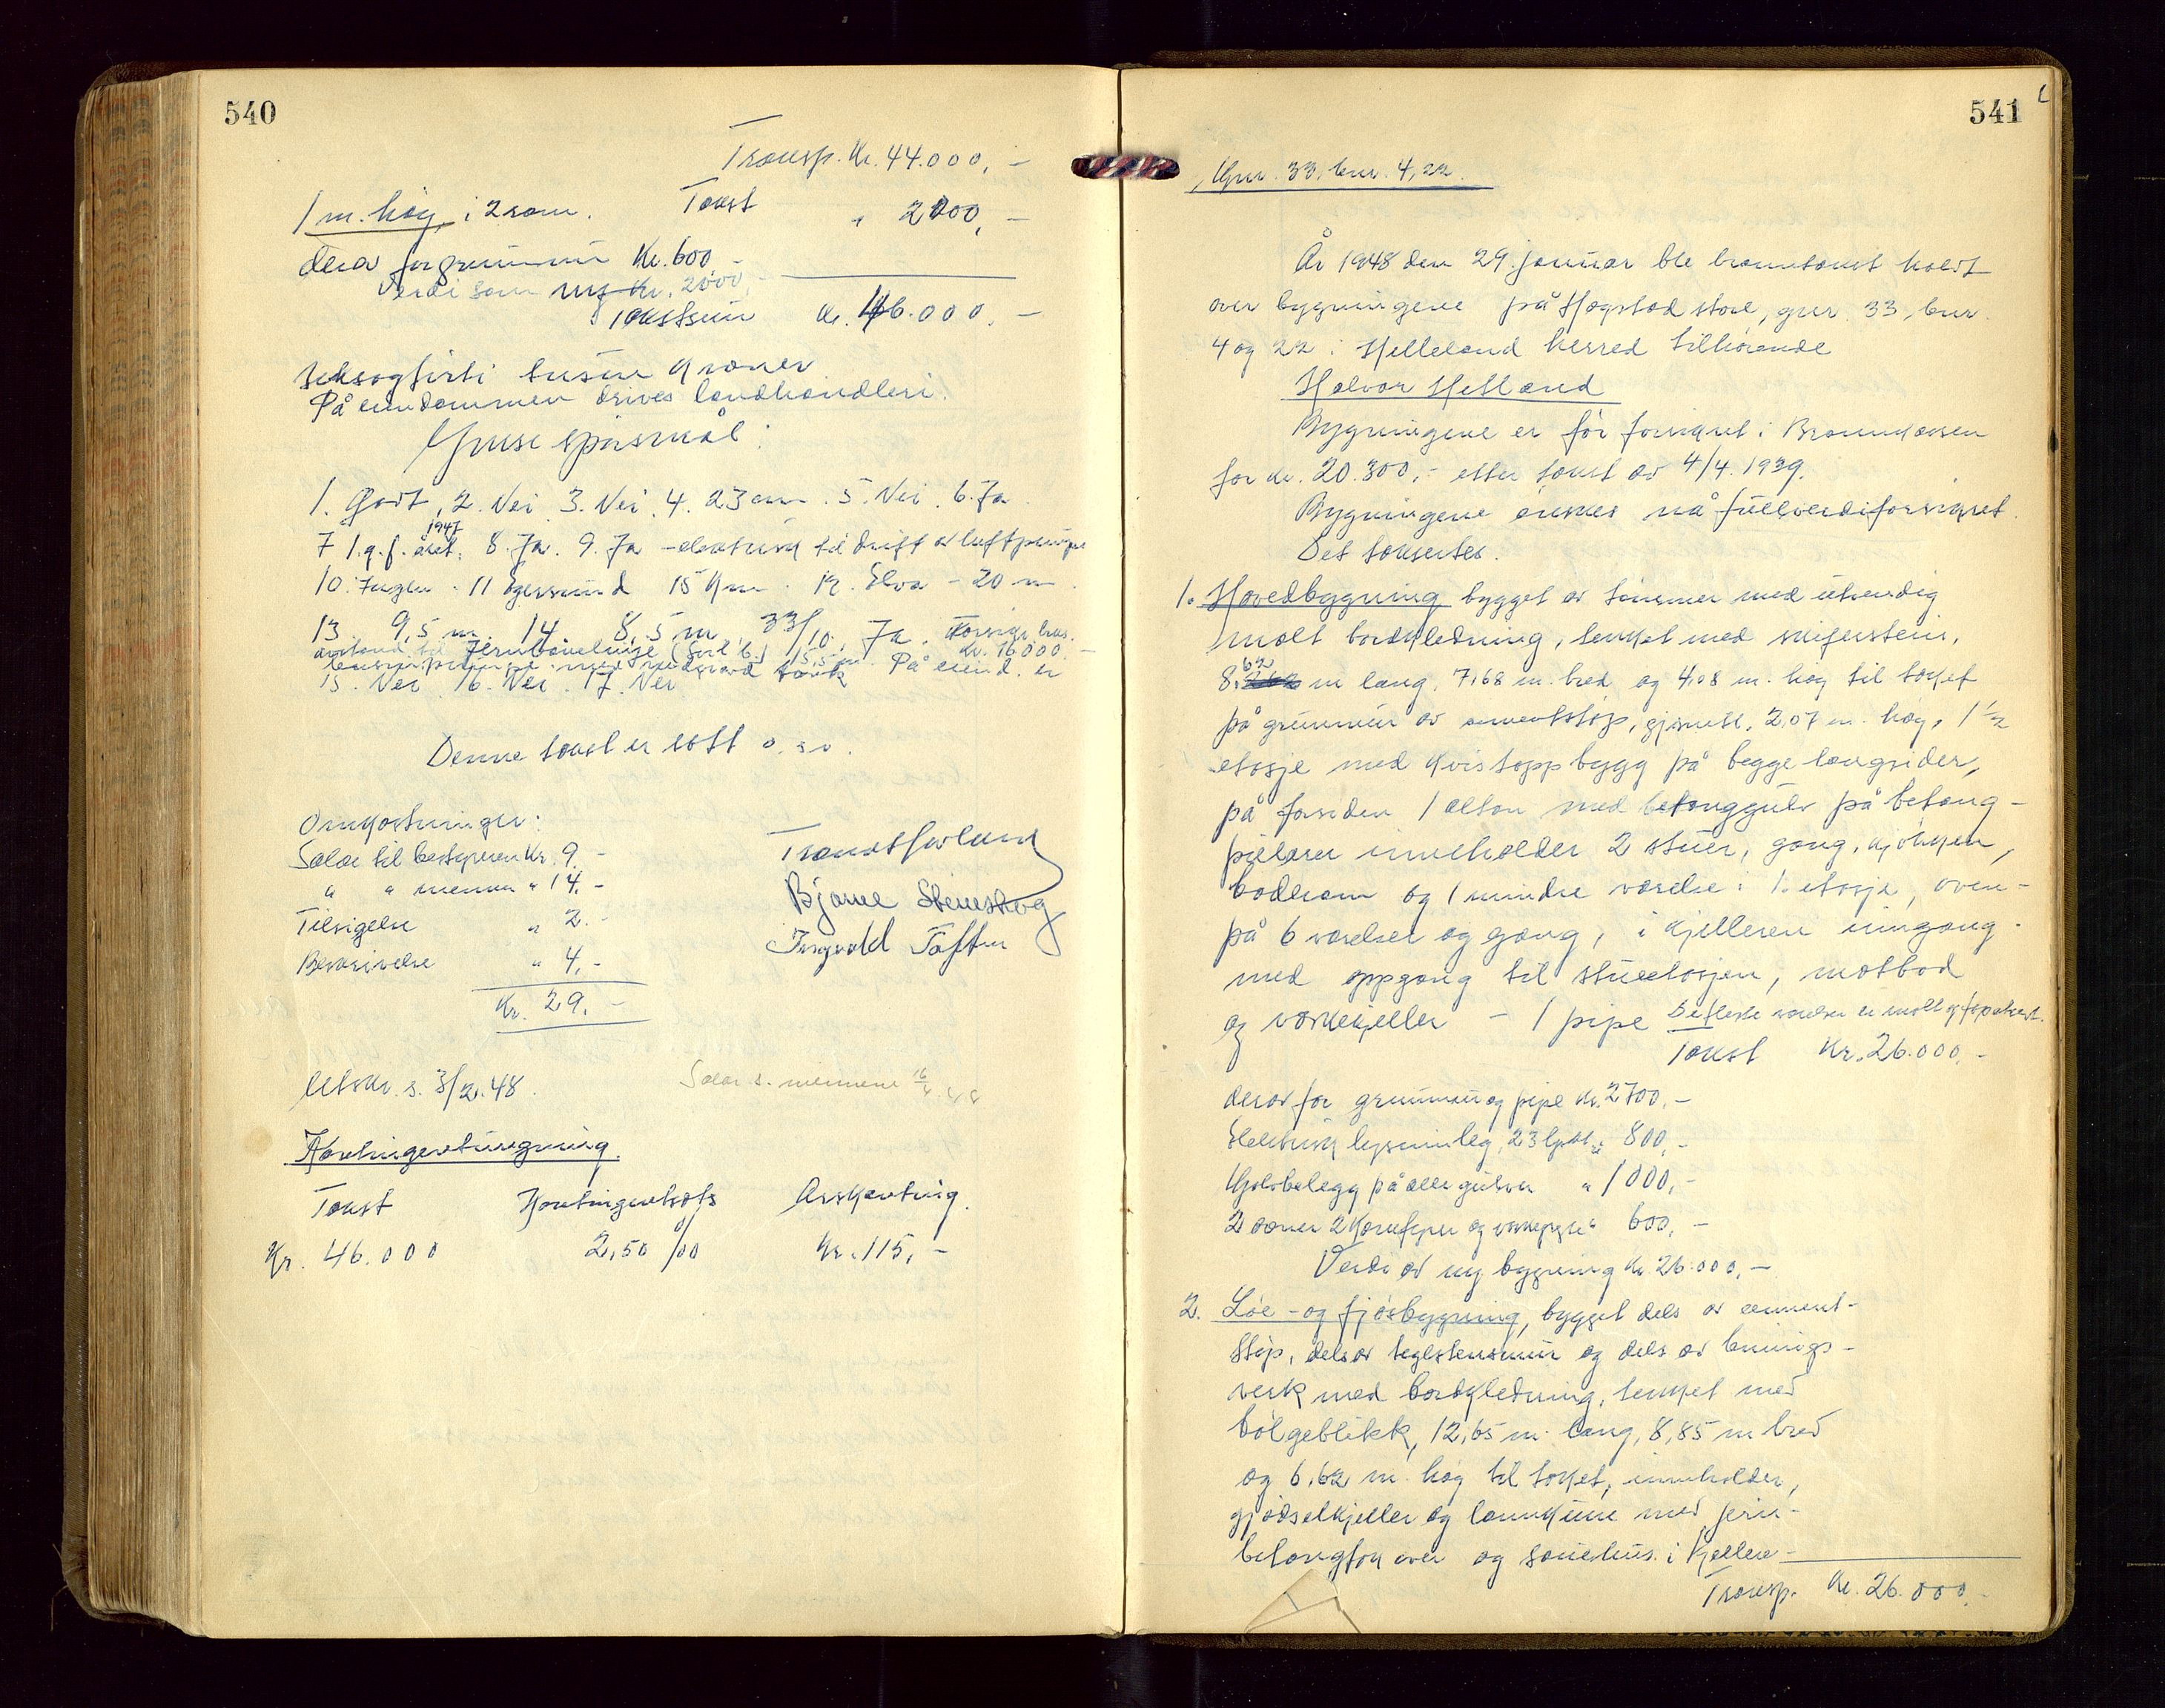 540
Transp. Kr. 44.000,-
1 m. høg, i 2 rom. Takst " 2000,-
derav for grunnmur Kr. 600,-
Verdi som ny Kr. 2000,-
Takstsum Kr. 46.000,-
seksogførti tusen kroner
På eiendommen drives landhandleri.
Ymse spørsmål:
1. Godt, 2. Nei 3. Nei. 4. 23 cm. 5. Nei. 6. Ja.
7 1.g.f. året. 1947 8. Ja. 9. Ja - elektrisk til drift av luftpumpe
10. Ingen. 11 Egersund 15 km. 12. Elva - 20 m.
13. 9,5 m. 14. 8,5 m 33/10. Ja. Forsikr. hos.
avstand til Jernbanelinje 15,5 m. Kr. 16000.-
bensinpumpe med nedgravd tank På eiend. er
15. Nei. 16. Nei. 17. Nei
Denne takst er sått o.s.v.
Omkostninger:
Salær til bestyreren Kr. 9.-
" " mennene " 14.-
Tilsigelse " 2.-
Beskrivelse " 4,-
Kr. 29.-
Bjarne Steinskog
Ingvald Toften
Utskr. s. 3/2.48.
Salær s. mennene 16/4.48
Kontingentutregning.
Takst Kontingentsats Årskonting.
Kr. 46.000 2,50 ‰ Kr. 115,-
541
Gnr. 33, bnr. 4, 22.
År 1948 den 29. januar ble branntakst holdt
over bygningene på Hogstad støl, gnr. 33, bnr.
4 og 22 i Helleland herred tilhørende
Halvor Hetland
Bygningene er før forsikret i Brannkassen
for kr. 20.300,- etter takst av 4/4. 1939.
Bygningene ønskes nå fullverdiforsikret.
Det takseres.
1. Hovedbygning bygget av tømmer med utvendig
malt bordkledning, tekket med skiferstein,
8,62 m lang, 7,68 m. bred og 4,08 m. høg til taket
på grunnmur av sementstøp, gjsnitl. 2,07 m. høg, 1 1/2
etasje med kvistoppbygg på begge langsider,
på forsiden 1 altan med betonggulv på betong-
pilarer inneholder 2 stuer, gang, kjøkken,
badrom og 1 mindre værelse i 1. etasje, oven-
på 6 værelser og gang, i kjelleren inngang
med oppgang til stuetasjen, matbod
og vaskekjeller - 1 pipe De fleste værelser er malt og tapetsert.
Takst Kr. 26.000,-
derav for grunnmur og pipe Kr. 2700,-
Elektrisk lysinnleg, 23 lpkt " 800,-
Golvbelegg på alle gulver " 1000,-
2 ovner 2 komfyrer og vaskegryte " 600,-
Verdi av ny bygning Kr. 26.000,-
2. Løe- og fjøsbygning, bygget dels av cement-
støp, dels av teglstensmur og dels av binnings-
verk med bordkledning, tekket med
bølgeblikk, 12,65 m. lang, 8,85 m bred
og 6,62 m. høg til taket, inneholder,
gjødselkjeller og landkum med jern-
betongtak over og sauehus i Kjeller-
Transp. Kr. 26.000,-